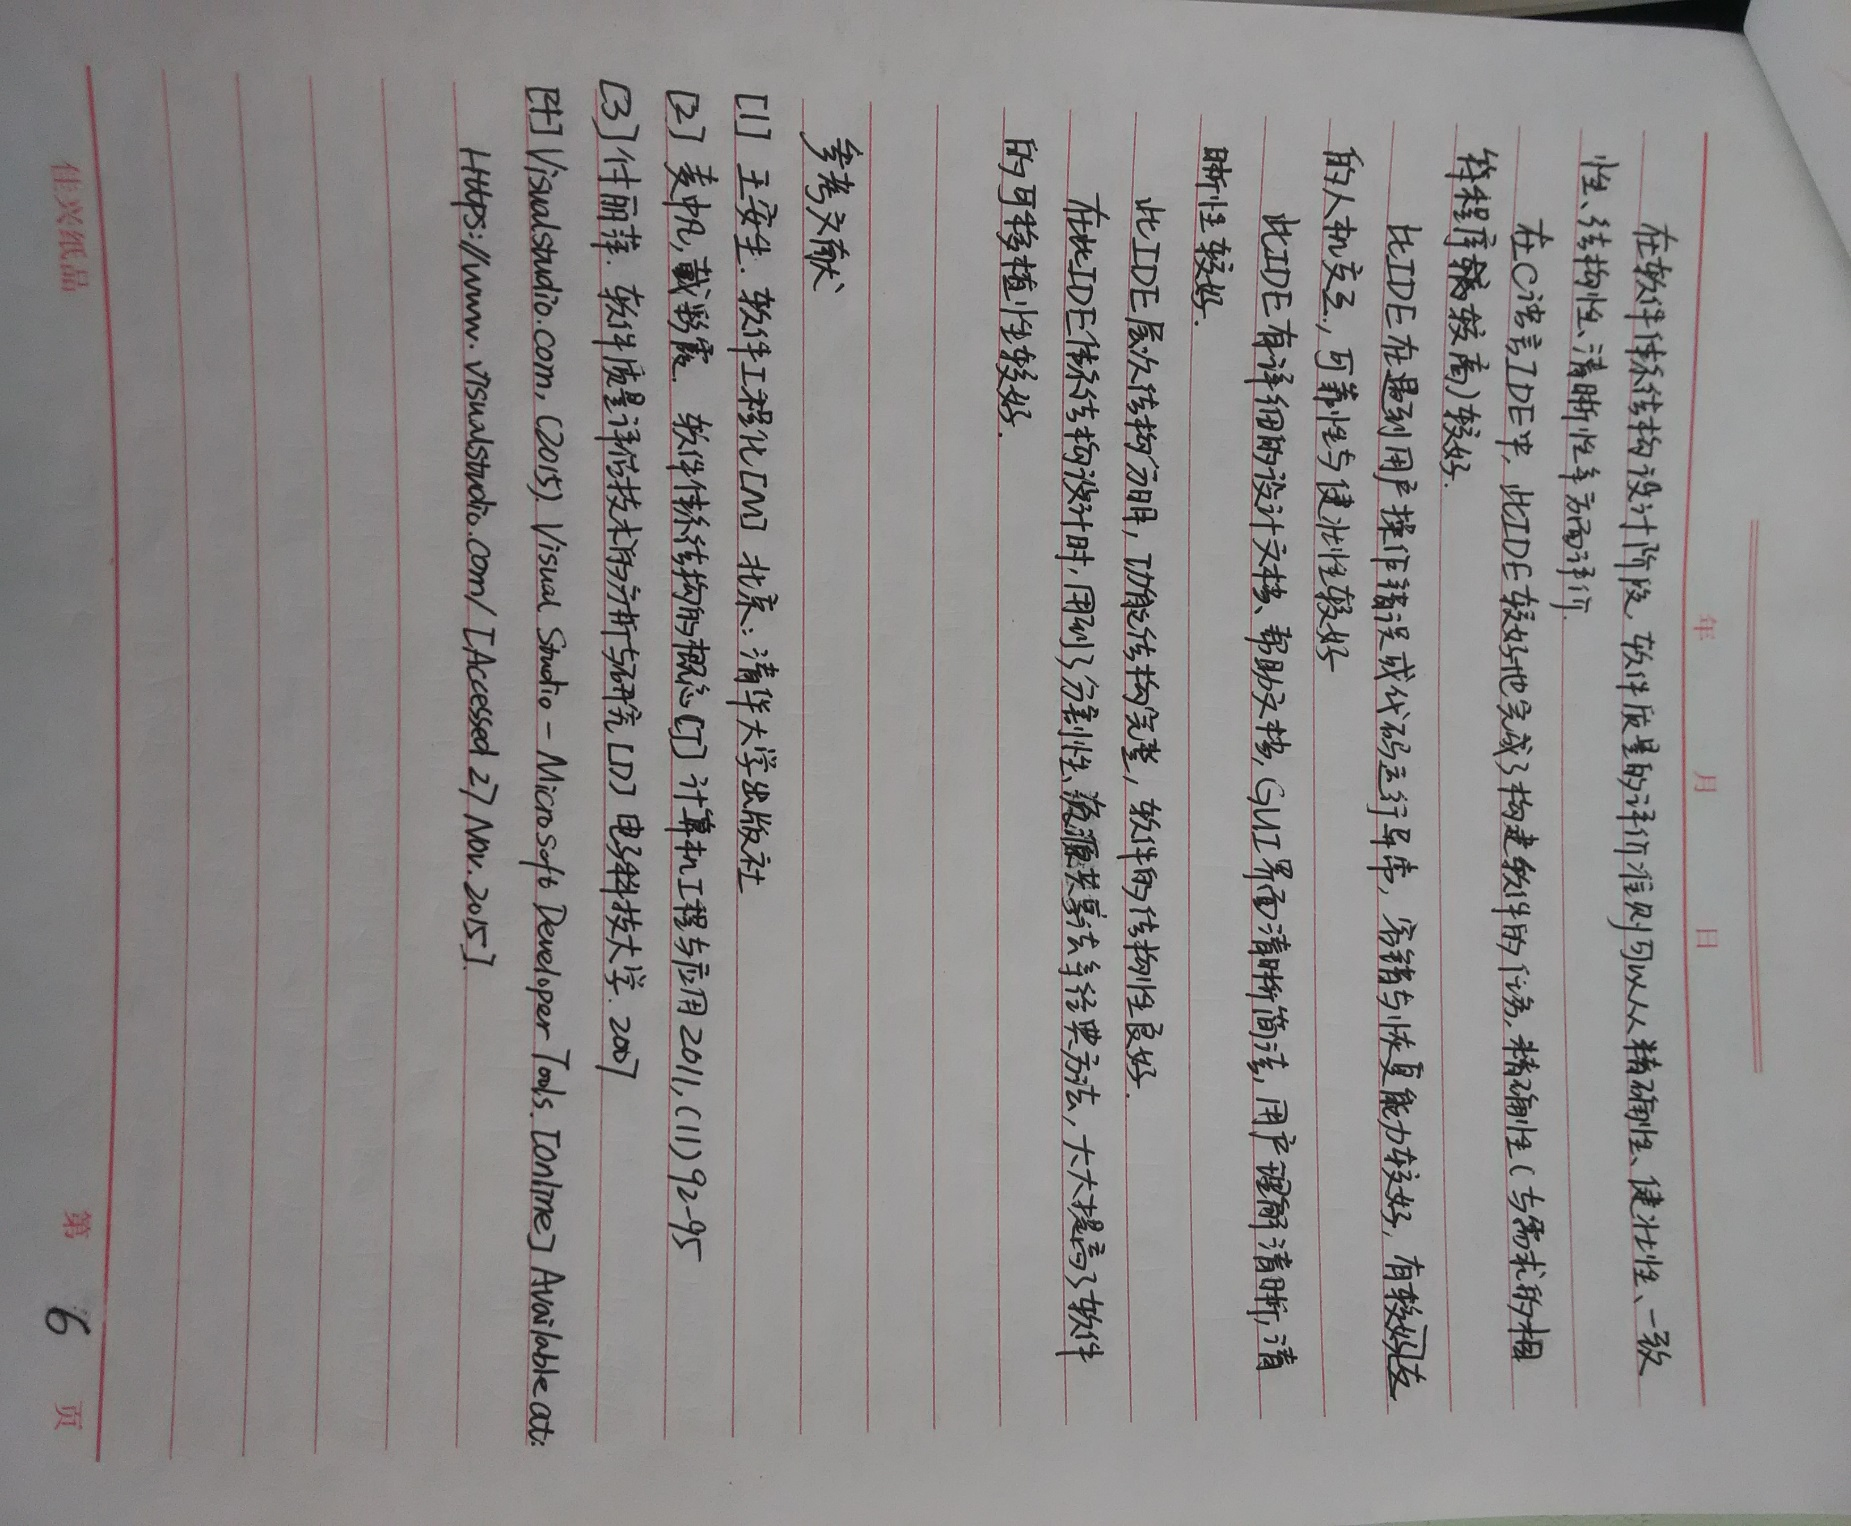 年 月 日
在软件体系结构设计阶段,软件质量的评价准则可以从精确性、健壮性、一致
性、结构性、清晰性等方面评价.
在C语言IDE中,此IDE较好地完成了构建软件的任务,精确性(与需求的相
符程度较高)较好.
此IDE在遇到用户操作错误或代码运行异常,容错与恢复能力较好,有较好
的人机交互,可靠性与健壮性较好
此IDE有详细的设计文档、帮助文档,GUI界面清晰简洁,用户理解清晰,清
晰性较好.
此IDE层次结构分明,功能结构完整,软件的结构性良好.
在此IDE体系结构设计时,用到了分割性、等经典方法,大大提高了软件
的可移植性较好.
参考文献
[1] 王安生.软件工程化[M] 北京:清华大学出版社
[2] 麦中凡,戴彩霞. 软件体系结构的概念[J] 计算机工程与应用2011,(11)92-95
[3] 付丽萍. 软件质量评估技术的分析与研究[D] 电子科技大学.2007
[4] Visualstudio.com, (2015). Visual Studio - Microsoft Developer Tools. [online] Available at:
Https://www.visualstudio.com/ [Accessed 27 Nov. 2015].
佳兴纸品 第 6 页